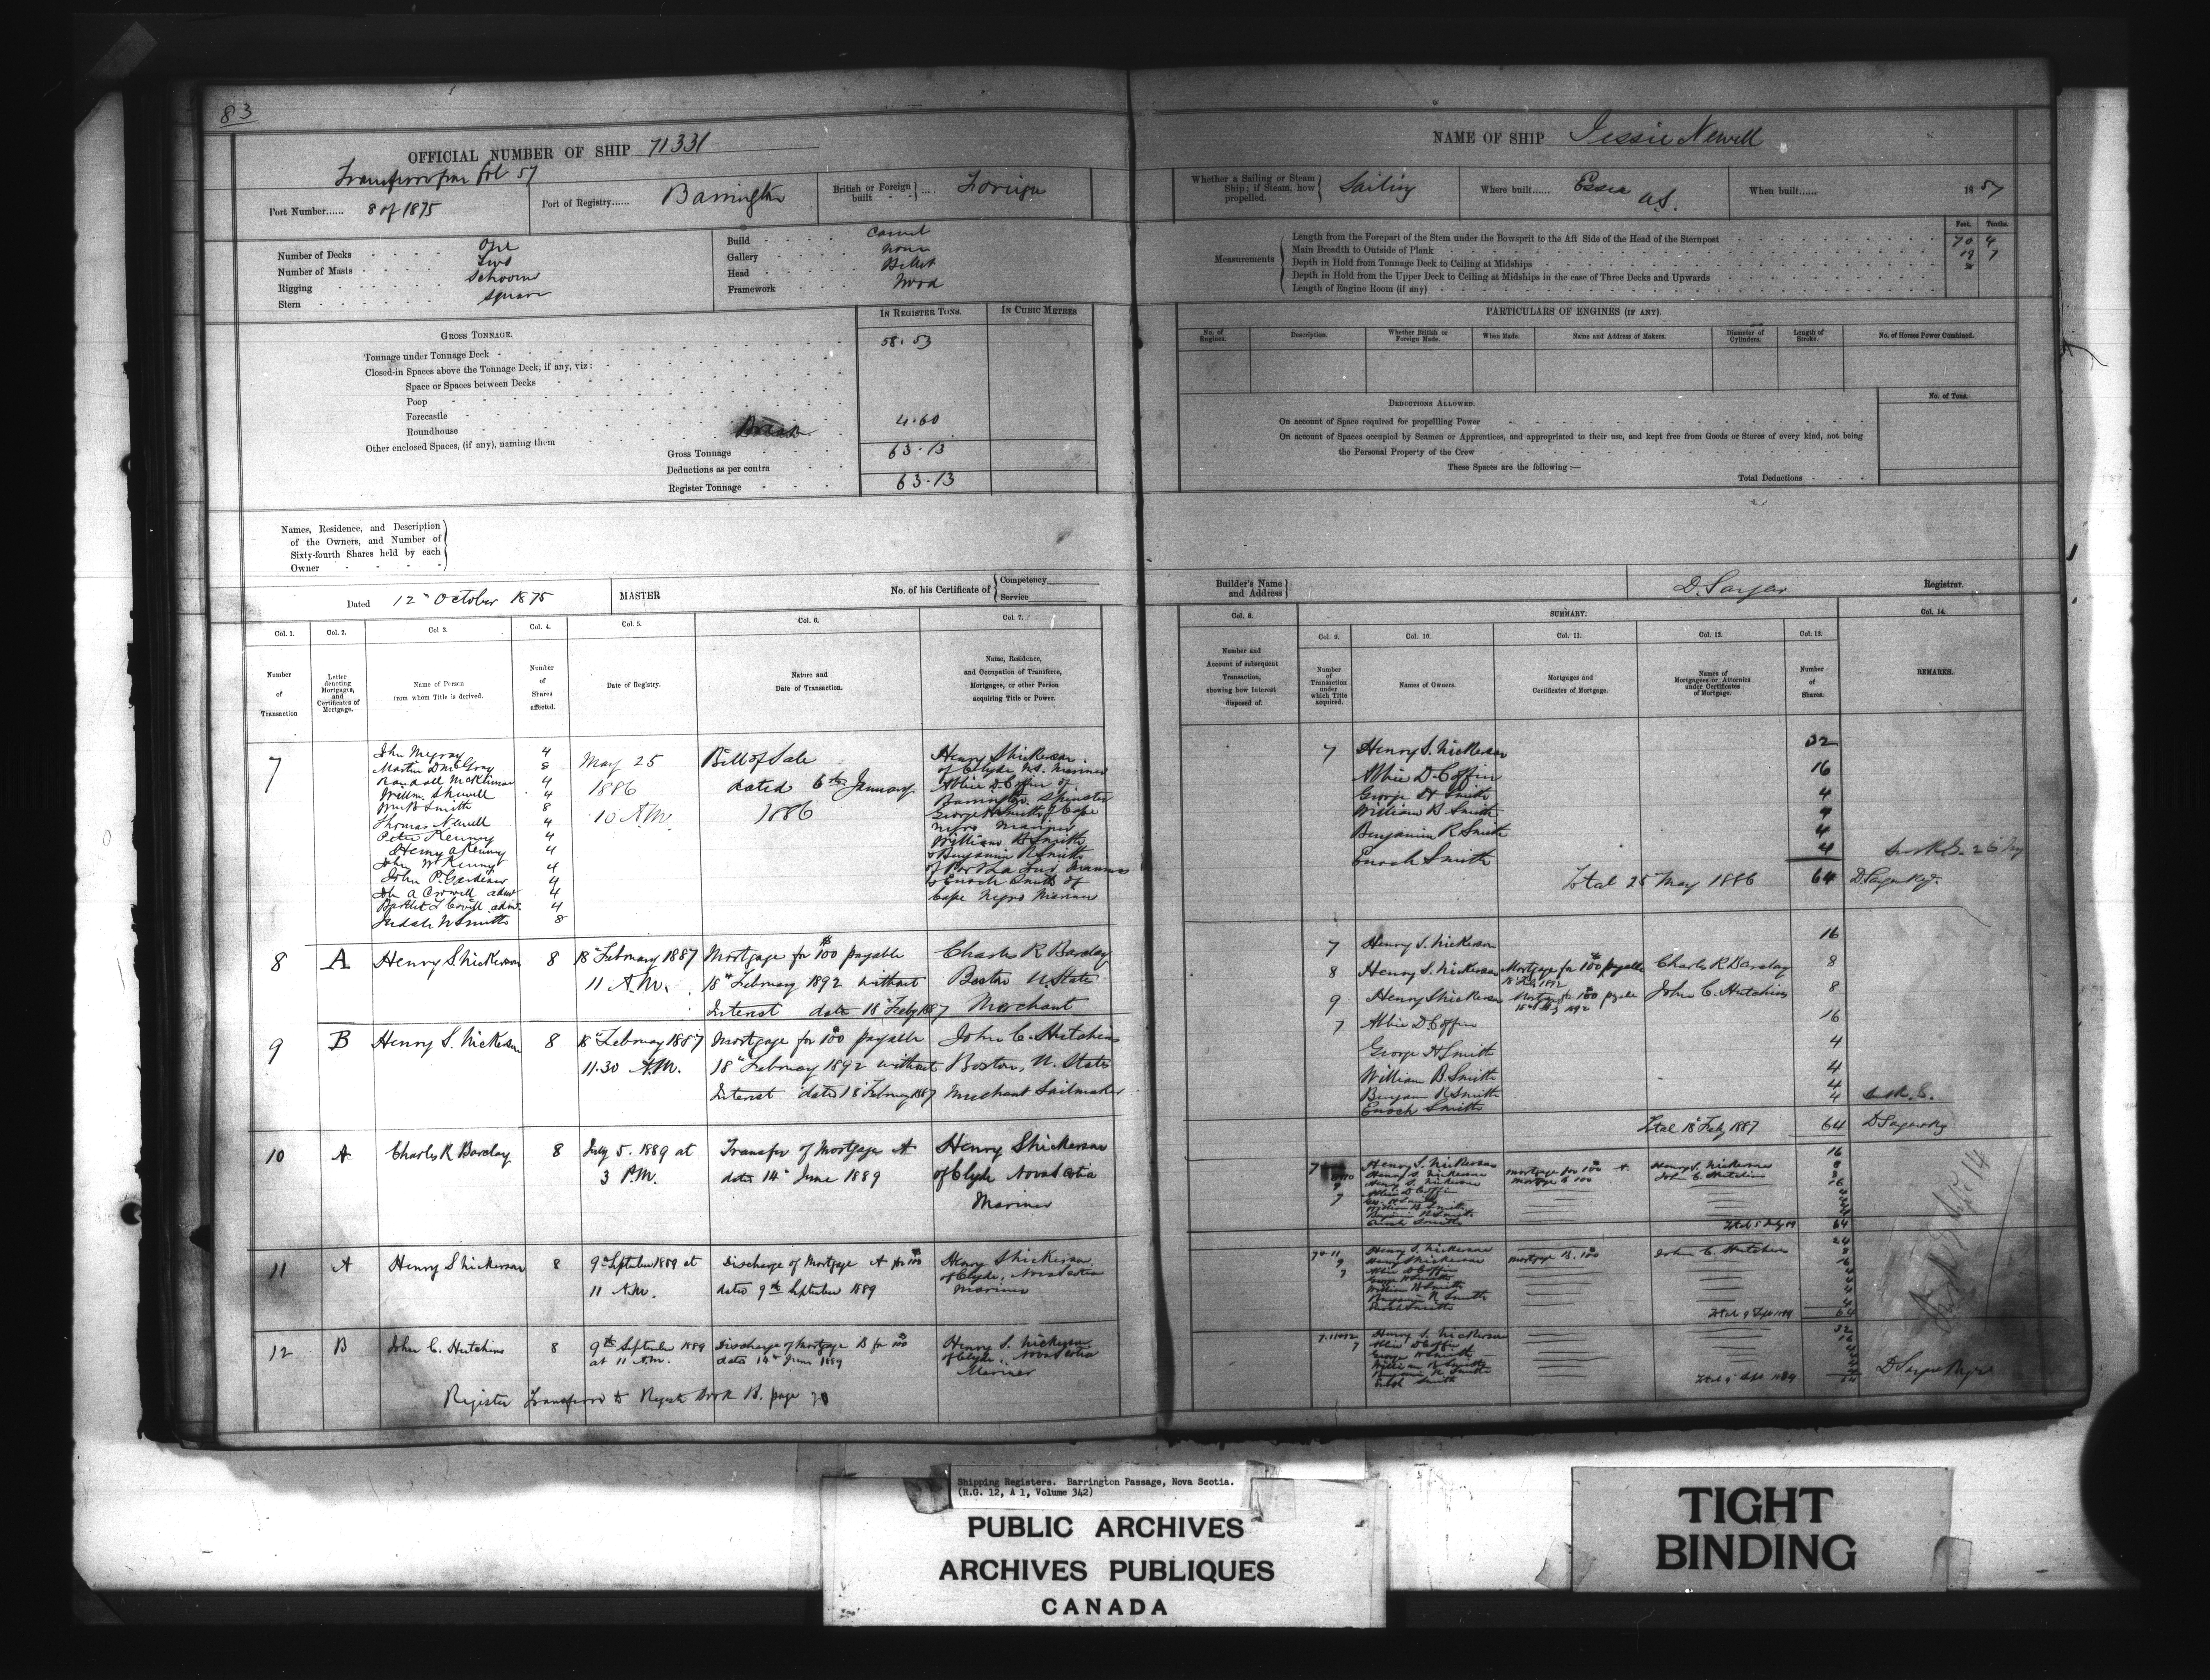 83
OFFICIAL NUMBER OF SHIP 71331
fol 57
Port Number...... 8 of 1875
Port of Registry...... Barrington
British or Foreign built .... Foreign
Number of Decks One
Number of Masts Two
Rigging Schooner
Stern Square
Build Carvel
Gallery None
Head Billet
Framework Wood
GROSS TONNAGE.
IN REGISTER TONS.
IN CUBIC METRES
Tonnage under Tonnage Deck 58.53
Closed-in Spaces above the Tonnage Deck, if any, viz:
Space or Spaces between Decks
Poop
Forecastle
Roundhouse
Other enclosed Spaces, (if any), naming them Break 4.60
Gross Tonnage 63.13
Deductions as per contra
Register Tonnage 63.13
Names, Residence, and Description
of the Owners, and Number of
Sixty-fourth Shares held by each
Owner
Dated 12th October 1875
MASTER
No. of his Certificate of
Competency
Service
Col. 1.
Col. 2.
Col 3.
Col. 4.
Col. 5.
Col. 6.
Col. 7.
Number of Transaction
Letter denoting Mortgages, and Certificates of Mortgage.
Name of Person from whom Title is derived.
Number of Shares affected.
Date of Registry.
Nature and Date of Transaction.
Name, Residence, and Occupation of Transferee, Mortgagee, or other Person acquiring Title or Power.
7
John McGray 4
Martin D McGray 8
Randall McKinnon 4
Willm. Shewell 4
Wm B Smith 8
Thomas Newell 4
Peter Kenny 4
Henry A Kenny 4
John W Kenny 4
John P. Gardiner 4
A Crowell admr 4
4
Smith 8
May 25
1886
10 A.M.
Bill of Sale
dated 6th January
1886
Henry S Nickerson
of Clyde N.S. Mariner
Abbie D Coffin of
Barrington Spinster
George H Smith of Cape
Negro Mariner
William B Smith
& Benjamin R Smith
of Port La Tour Mariners
& Enoch Smith of
Cape Negro Mariner
8 A Henry S Nickerson 8
18th February 1887
11 A.M.
Mortgage for $100 payable
18th February 1892 without
Interest date 18 Feby 1887
Charles R Barclay
Boston U. States
Merchant
9 B Henry S. Nickerson 8
18th February 1887
11.30 A.M.
Mortgage for $100 payable
18th February 1892 without
Interest dated 18 February 1887
John C. Hutchins
Boston, U. States
Merchant Sailmaker
10 A Charles R Barclay 8
July 5. 1889 at
3 P.M.
Transfer of Mortgage A
dated 14th June 1889
Henry S Nickerson
of Clyde Nova Scotia
Mariner
11 A Henry S Nickerson 8
9th September 1889 at
11 A.M.
Discharge of Mortgage A for $100
dated 9th September 1889
Henry S Nickerson
of Clyde, Nova Scotia
Mariner
12 B John C. Hutchins 8
9th September 1889
at 11 A.M.
Discharge of Mortgage B for $100
dated 14th June 1889
Henry S. Nickerson
of Clyde, Nova Scotia
Mariner
Register Transferred to Register Book B. page
NAME OF SHIP Jessie Newell
Whether a Sailing or Steam Ship; if Steam, how propelled. Sailing
Where built...... Essex U.S.
When built...... 1857
Measurements
Feet. Tenths.
Length from the Forepart of the Stem under the Bowsprit to the Aft Side of the Head of the Sternpost 70 4
Main Breadth to Outside of Plank 19 7
Depth in Hold from Tonnage Deck to Ceiling at Midships
Depth in Hold from the Upper Deck to Ceiling at Midships in the case of Three Decks and Upwards
Length of Engine Room (if any)
PARTICULARS OF ENGINES (IF ANY).
No. of Engines.
Description.
Whether British or Foreign Made.
When Made.
Name and Address of Makers.
Diameter of Cylinders.
Length of Stroke.
No. of Horses Power Combined.
DEDUCTIONS ALLOWED.
No. of Tons.
On account of Space required for propelling Power
On account of Spaces occupied by Seamen or Apprentices, and appropriated to their use, and kept free from Goods or Stores of every kind, not being
the Personal Property of the Crew
These Spaces are the following :—
Total Deductions
Builder's Name and Address
D. Sargent
Registrar.
SUMMARY.
Col. 8.
Col. 9.
Col. 10.
Col. 11.
Col. 12.
Col. 13.
Col. 14.
Number and Account of subsequent Transaction, showing how Interest disposed of.
Number of Transaction under which Title acquired.
Names of Owners.
Mortgages and Certificates of Mortgage.
Names of Mortgagees or Attorneys under Certificates of Mortgage.
Number of Shares.
REMARKS.
7 Henry S. Nickerson 32
Abbie D. Coffin 16
George H Smith 4
William B Smith 4
Benjamin R Smith 4
Enoch Smith 4
Total 25 May 1886 64
7 Henry S. Nickerson 16
8 Henry S. Nickerson Mortgage for $100 payable 18 Feb 1892 Charles R Barclay 8
9 Henry S Nickerson Mortgage for $100 payable John C. Hutchins 8
7 Abbie D Coffin 16
George H Smith 4
William B. Smith 4
Benjamin R Smith 4
Enoch Smith 4
Total 18th Feby 1887 64
Henry S. Nickerson 16
Henry S. Nickerson mortgage for 100 A Henry S. Nickerson 8
Henry S. Nickerson Mortgage B 100 John C. Hutchins 8
7 Abbie D Coffin 16
William B Smith
Benjamin R Smith
Enoch Smith
64
7 & 11 Henry S. Nickerson 24
9 Henry S Nickerson Mortgage B. 100 John C. Hutchins 8
7 Abbie D Coffin 16
George H Smith
William B Smith
Benjamin R Smith
Enoch Smith
Total 9 Sept 1889 64
Henry S. Nickerson 32
7 Abbie D Coffin 16
George H Smith
William B Smith
Benjamin R Smith
Enoch Smith
Total 9 Sept 1889
Shipping Registers. Barrington Passage, Nova Scotia.
(R.G. 12, A 1, Volume 342)
PUBLIC ARCHIVES
ARCHIVES PUBLIQUES
CANADA
TIGHT
BINDING